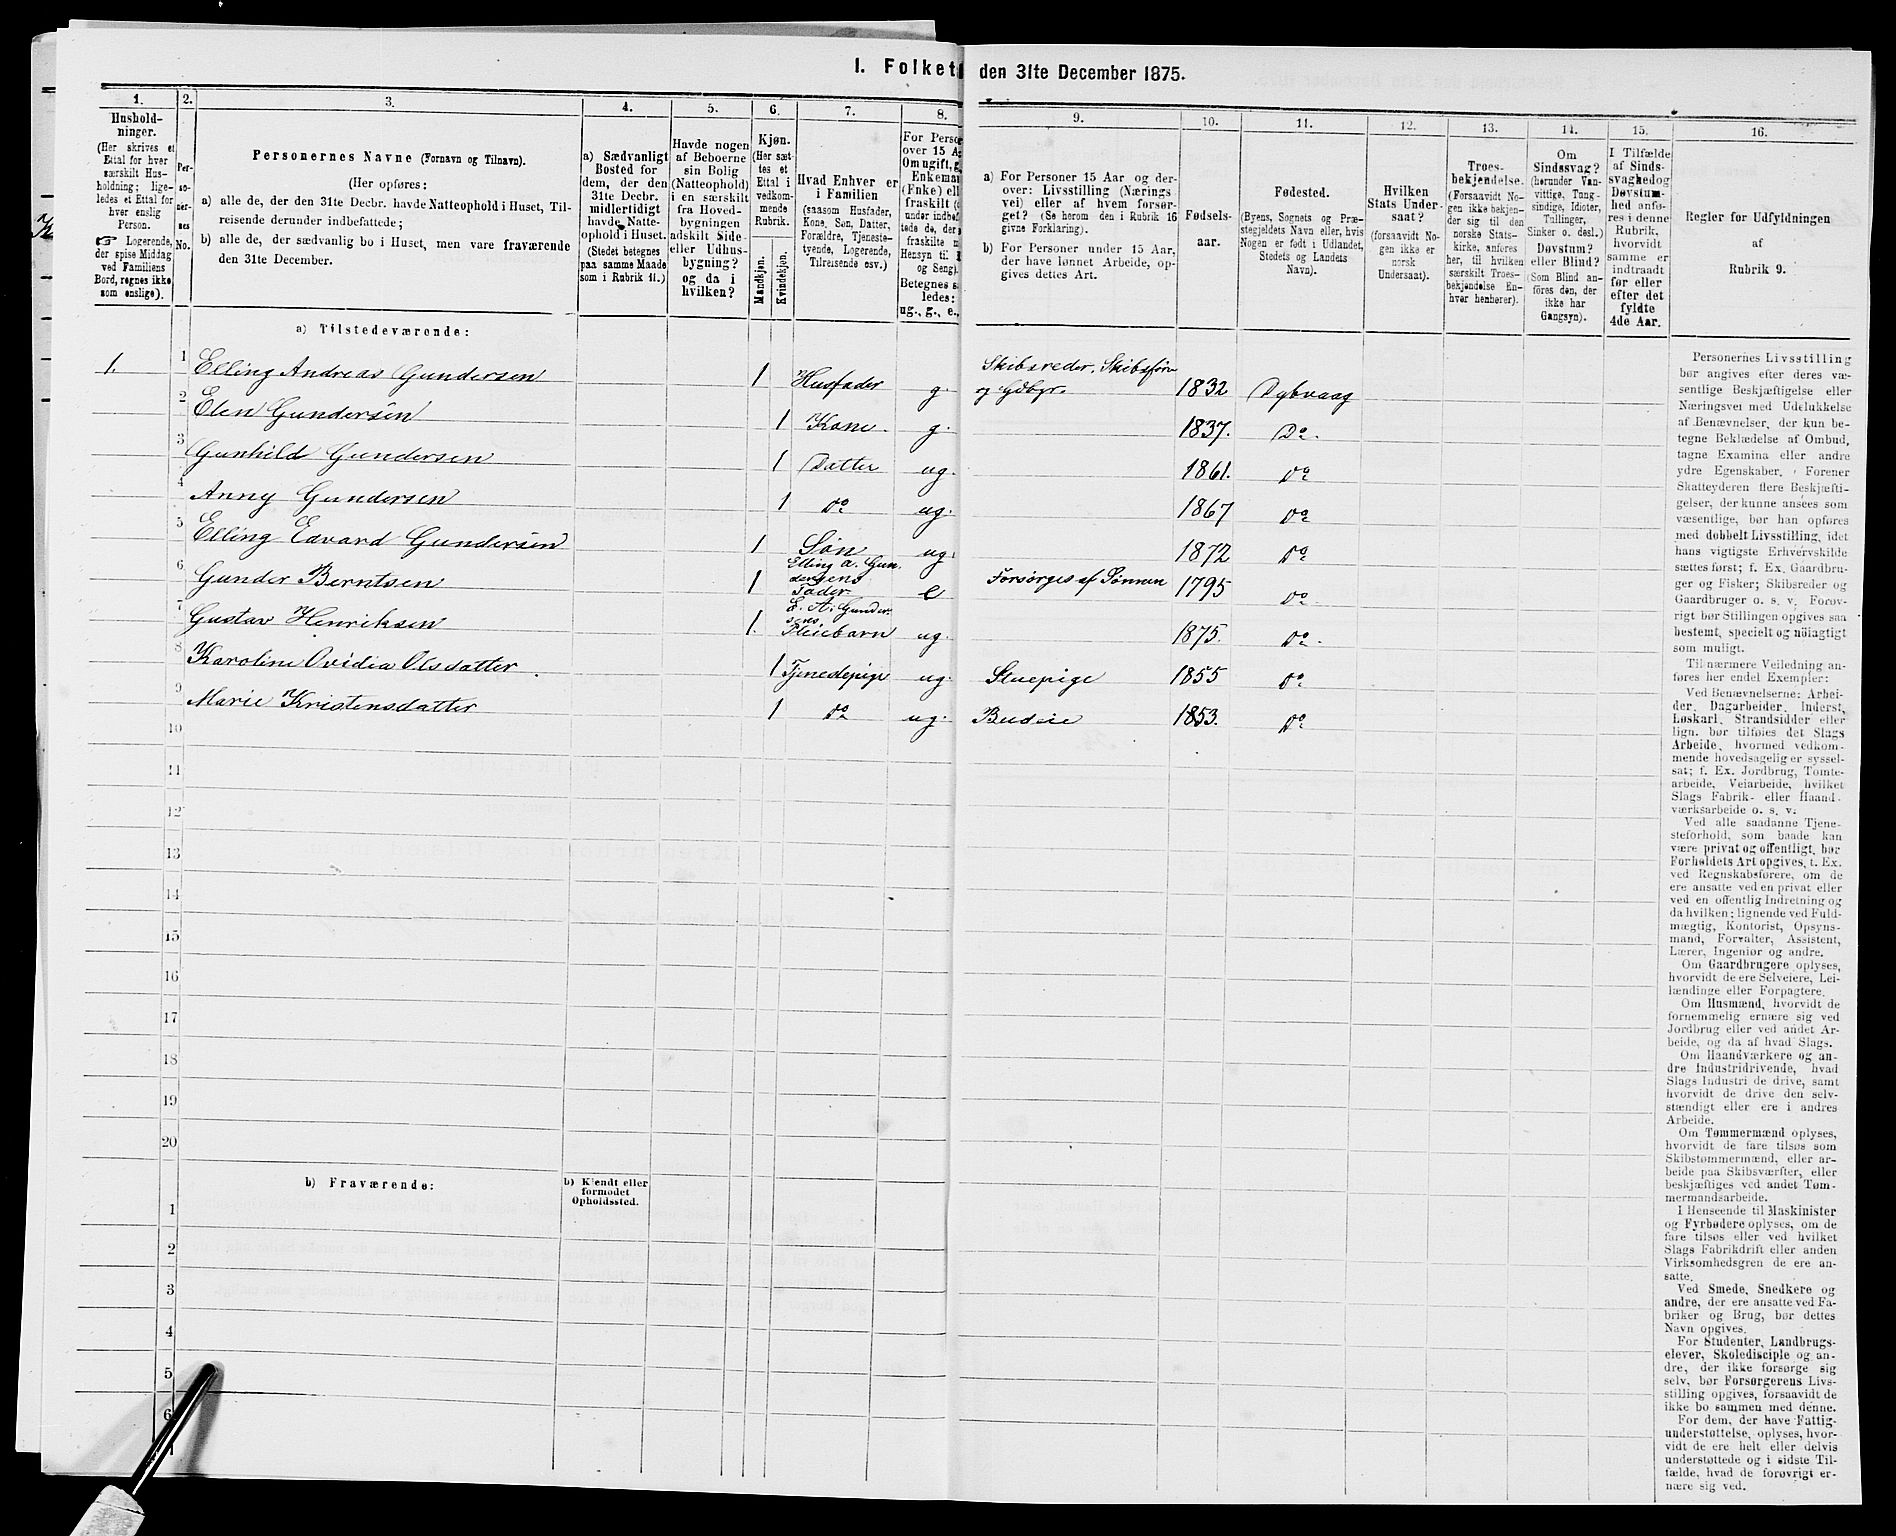 I. Folket
den 31te December 1875.
1.
Hushold-
ninger.
(Her skrives et
Ettal for hver
særskilt Hus-
holdning; lige-
ledes et Ettal for
hver enslig
Person.
☞ Logerende,
der spise Middag
ved Familiens
Bord, regnes ikke
som enslige).
2.
Per-
so-
ner-
nes
No.
3.
Personernes Navne (Fornavn og Tilnavn).
(Her opføres:
a) alle de, der den 31te Decbr. havde Natteophold i Huset, Til-
reisende derunder indbefattede;
b) alle de, der sædvanlig bo i Huset, men vare fraværende
den 31te December.
4.
a) Sædvanligt
Bosted for
dem, der den
31te Decbr.
midlertidigt
havde Natte-
ophold i Huset.
(Stedet betegnes
paa samme Maade
som i Rubrik 11.)
5.
Havde nogen
af Beboerne
sin Bolig
(Natteophold)
i en særskilt
fra Hoved-
bygningen
adskilt Side-
eller Udhus-
bygning?
og da i
hvilken?
6.
Kjøn.
(Her sæt-
tes et
Ettal i
vedkom-
mende
Rubrik.
Mandkjøn.
Kvindekjøn.
7.
Hvad Enhver er
i Familien
(saasom Husfader,
Kone, Søn, Datter,
Forældre, Tjeneste-
tyende, Logerende,
Tilreisende osv.)
8.
For Perso
over 15 A
Om ugift, g
Enkema
(Enke) ell
fraskilt (
under indbef
tede de, der
fraskilte
Hensyn til
og Seng).
Betegnes s
ledes:
ug., g., e.,
9.
a) For Personer 15 Aar og der-
over: Livsstilling (Nærings
vei) eller af hvem forsør-
get? (Se herom den i Rubrik 16
givne Forklaring).
b) For Personer under 15 Aar,
der have lønnet Arbeide, op-
gives dettes Art.
10.
Fødsels-
aar.
11.
Fødested.
(Byens, Sognets og Præ-
stegjeldets Navn eller, hvis
Nogen er født i Udlandet,
Stedets og Landets
Navn).
12.
Hvilken
Stats Under-
saat?
(forsaavidt No-
gen ikke er
norsk
Undersaat).
13.
Troes-
bekjendelse.
(Forsaavidt No-
gen ikke bekjen-
der sig til den
norske Stats-
kirke, anføres
her, til hvilken
særskilt Troes-
bekjendelse En-
hver henhører).
14.
Om
Sindssvag?
(herunder Van-
vittige, Tung-
sindige, Idioter,
Tullinger,
Sinker o. desl.)
Døvstum?
eller Blind?
(Som Blind an-
føres den, der
ikke har
Gangsyn).
15.
I Tilfælde
af Sinds-
svaghed og
Døvstum-
hed anfø-
res i denne
Rubrik,
hvorvidt
samme er
indtraadt
før eller
efter det
fyldte
4de Aar.
16.
Regler for Udfyldningen
af
Rubrik 9.
a) Tilstedeværende:
1. 1 Elling Andreas Gundersen 1 Husfader g. Skibsreder, Skibsfører og Gdbgr. 1832 Dybvaag
2 Elen Gundersen 1 Kone. g. 1837. Do.
3 Gunhild Gundersen 1 Datter ug. 1861. do
4 Anny Gundersen 1 do ug. 1867 do
5 Elling Edvard Gundersen 1 Søn ug. 1872 do
6 Gunder Berntsen 1 Elling A. Gundersens Fader e Forsørges af Sønnen 1795 do
7 Gustav Henriksen 1. E. A. Gundersens Pleiebarn ug. 1875. do.
8 Karoline Ovidia Olsdatter. 1 Tjenestepige ug. Stuepige 1855 do
9 Marie Kristensdatter 1 do ug. Budeie 1853. do
10
11
12
13
14
15
16
17
18
19
20
b) Fraværende:
b) Kjendt eller
formodet
Opholdssted.
1
2
3
4
5
6
Personernes Livsstilling
bør angives efter deres væ-
sentlige Beskjæftigelse eller
Næringsvei med Udelukkelse
af Benævnelser, der kun be-
tegne Beklædelse af Ombud,
tagne Examina eller andre
ydre Egenskaber. Forener
Skatteyderen flere Beskjæfti-
gelser, der kunne ansées som
væsentlige, bør han opføres
med dobbelt Livsstilling, idet
hans vigtigste Erhvervskilde
sættes først; f. Ex. Gaardbru-
ger og Fisker; Skibsreder og
Gaardbruger o. s. v. Forøv-
rigt bør Stillingen opgives saa
bestemt, specielt og nöiagtigt
som muligt.
Til nærmere Veiledning an-
føres her endel Exempler:
Ved Benævnelserne: Arbei-
der, Dagarbeider, Inderst,
Løskarl, Strandsidder eller
lign. bør tilføies det Slags
Arbeide, hvormed vedkom-
mende hovedsagelig er syssel-
sat; f. Ex. Jordbrug, Tomte-
arbeide, Veiarbeide, hvilket
Slags Fabrik- eller Haand-
værksarbeide o. s. v.
Ved alle saadanne Tjene-
steforhold, som baade kan
være privat og offentligt, bør
Forholdets Art opgives, t. Ex.
ved Regnskabsførere, om de
ere ansatte ved en privat eller
ved en offentlig Indretning og
da hvilken; lignende ved Fuld-
mægtig, Kontorist, Opsyns-
mand, Forvalter, Assistent,
Lærer, Ingeniør og andre.
Om Gaardbrugere oplyses,
hvorvidt de ere Selveiere, Lei-
lændinge eller Forpagtere.
Om Husmænd, hvorvidt de
fornemmelig ernære sig ved
Jordbrug eller ved andet Ar-
beide, og da af hvad Slags.
Om Haandværkere og an-
dre Industridrivende, hvad
Slags Industri de drive, samt
hvorvidt de drive den selv-
stændigt eller ere i andres
Arbeide.
Om Tømmermænd oplyses,
hvorvidt de fare tilsøs som
Skibstømmermænd, eller ar-
beide paa Skibsværfter, eller
beskjæftiges ved andet Tøm-
mermandsarbeide.
I Henseende til Maskinister
og Fyrbødere oplyses, om de
fare tilsøs eller ved hvilket
Slags Fabrikdrift eller anden
Virksomhedsgren de ere an-
satte.
Ved Smede, Snedkere og
andre, der ere ansatte ved Fa-
briker og Brug, bør dettes
Navn opgives.
For Studenter, Landbrugs-
elever, Skoledisciple og an-
dre, der ikke forsørge sig
selv, bør Forsørgerens Livs-
stilling opgives, forsaavidt de
ikke bo sammen med denne.
For dem, der have Fattig-
understøttelse, oplyses, hvor-
vidt de ere helt eller delvis
understøttede og i sidste Til-
fælde, hvad de forøvrigt er-
nære sig ved.